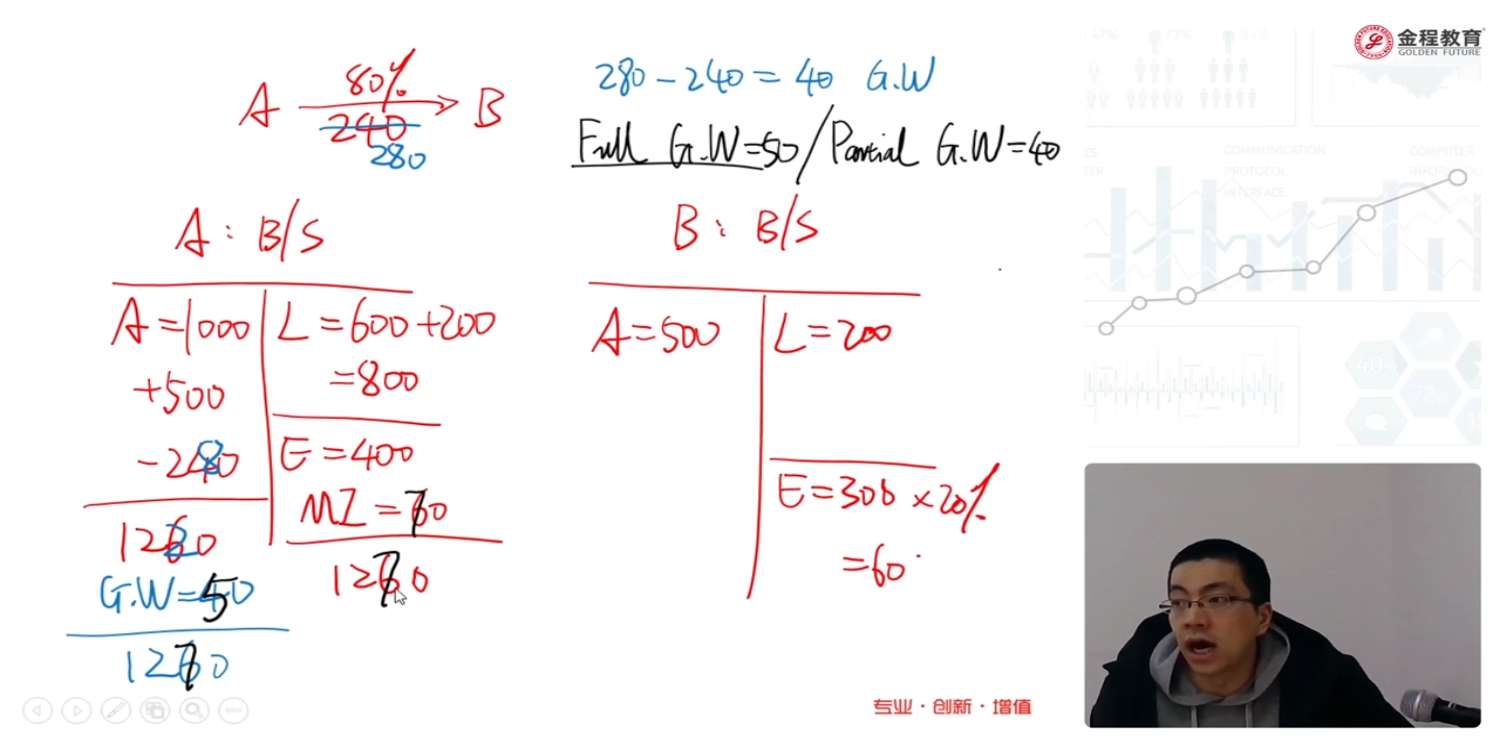 金程教育
GOLDEN FUTURE
A 80% B
240
280
280 - 240 = 40 G.W
Full G.W=50/Partial G.W=40
A: B/S
A=1000
+500
-280
1220
G.W=50
1270
L=600+200
=800
E=400
MI=70
1270
B: B/S
A=500
L=200
E=300×20%
=60
COMMUNICATION
PROTOCOL
INTERFACE
COMPUTER
专业·创新·增值